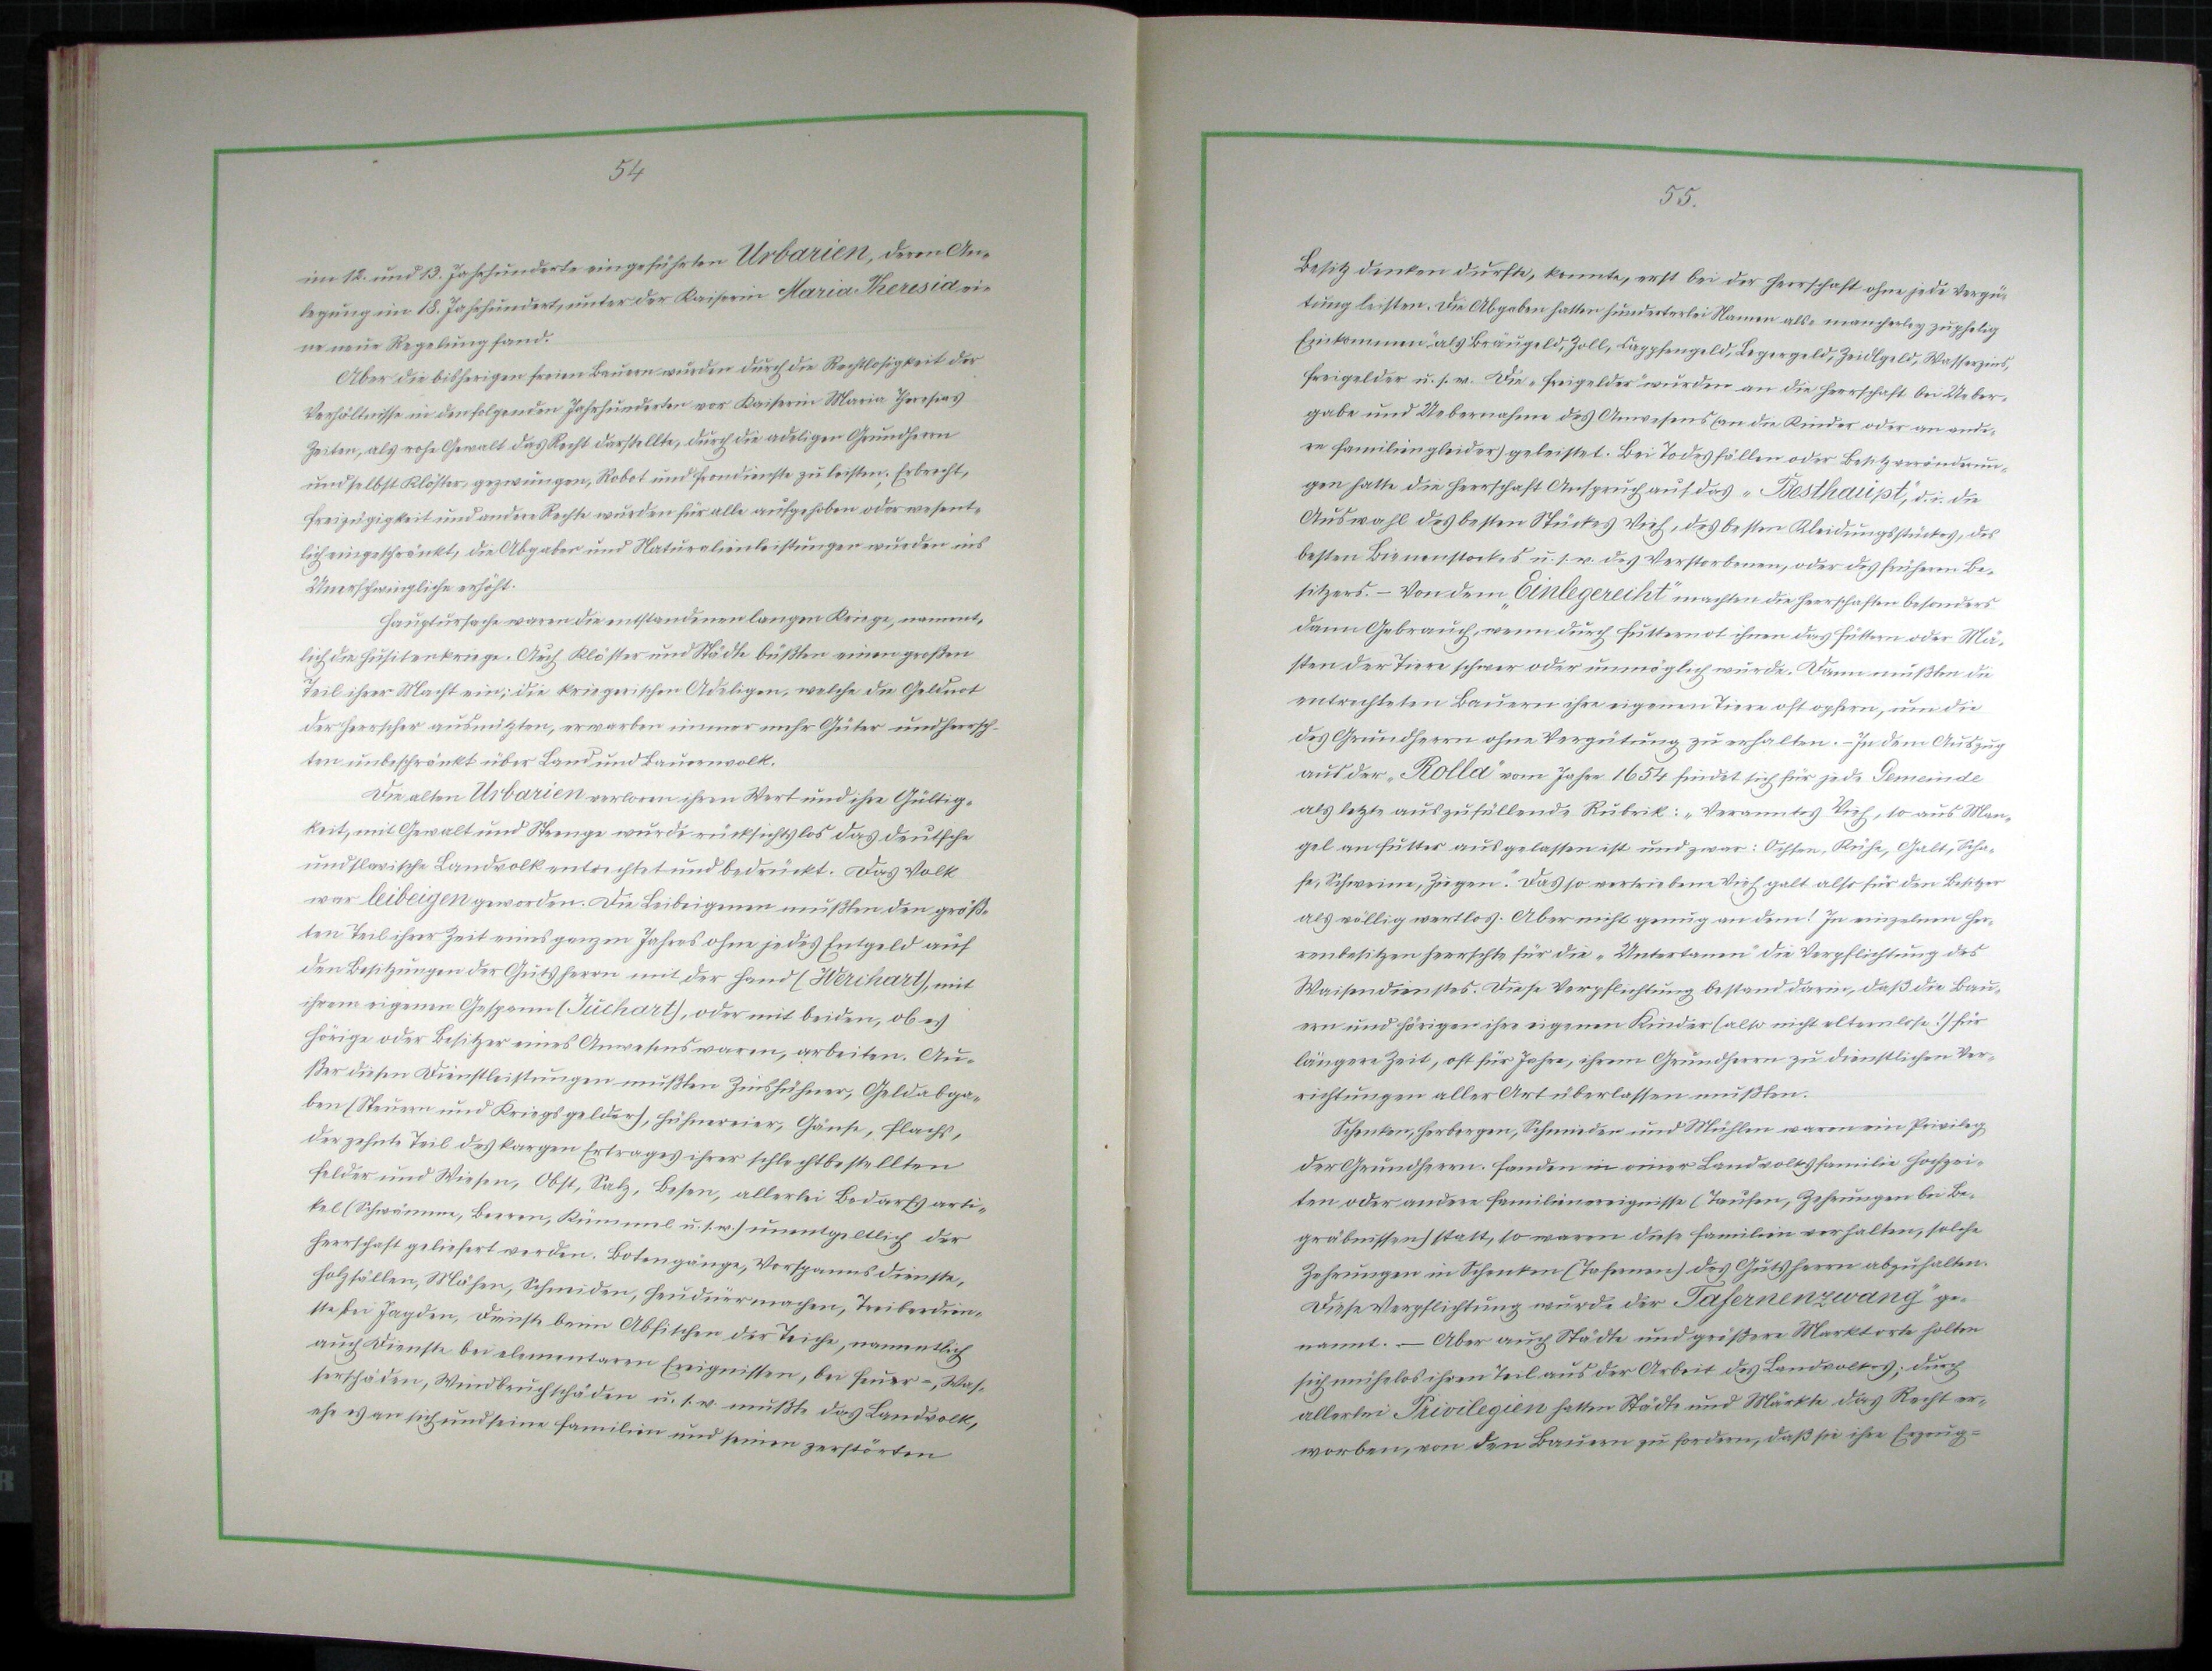 54
im 12. und 13. Jahrhunderte eingeführten Urbarien, deren An-
legung im 18. Jahrhundert, unter der Kaiserin Maria Theresia ei-
ne neue Regelung fand.
Aber die bisherigen freien Bauern wurden durch die Rechtlosigkeit der
Verhältnisse in den folgenden Jahrhunderten vor Kaiserin Maria Theresias
Zeiten, als rohe Gewalt das Recht darstellte, durch die adeligen Grundherrn
und selbst Klöster, gezwungen, Robot und Frondienste zu leisten; Erbrecht,
Freizügigkeit und andere Rechte wurden für alle aufgehoben oder wesent-
lich eingeschränkt, die Abgaben und Naturalienleistungen wurden ins
Unerschwingliche erhöht.
Hauptursache waren die entstandenen langen Kriege, nament-
lich die Husitenkriege. Auch Klöster und Städte büßten einen großen
Teil ihrer Macht ein; die kriegerischen Adeligen, welche die Geldnot
der Herrscher ausnützten, erwarben immer mehr Güter und herrsch-
ten unbeschränkt über Land und Bauernvolk.
Die alten Urbarien verloren ihren Wert und ihre Gültig-
keit, mit Gewalt und Strenge wurde rücksichtslos das deutsche
und slavische Landvolk entrechtet und bedrückt. Das Volk
war leibeigen geworden. Die Leibeigenen mußten den größ-
ten Teil ihrer Zeit eines ganzen Jahres ohne jedes Entgeld auf
den Besitzungen der Gutsherrn mit der Hand (Werchart), mit
ihrem eigenen Gespann (Juchart), oder mit beiden, ob es
Hörige oder Besitzer eines Anwesens waren, arbeiten. Au-
ßer diesen Dienstleistungen mußten Zinshühner, Geldabga-
ben (Steuern und Kriegsgelder), Hühnereier, Gänse, Flachs,
der zehnte Teil des kargen Ertrages ihrer schlechtbestellten
Felder und Wiesen, Obst, Salz, Besen, allerlei Bedarfsarti-
kel (Schwämme, Beeren, Kümmel u.s.w.) unentgeltlich der
Herrschaft geliefert werden. Botengänge, Vorspannsdienste,
Holzfällen, Mähen, Schneiden, Heudürrmachen, Treiberdien-
ste bei Jagden, Dienste beim Abfischen der Teiche, namentlich
auch Dienste bei elementaren Ereignissen, bei Feuer-, Was-
serschäden, Windbruchschäden u.s.w. mußte das Landvolk,
ehe es an sich und seine Familien und seinen zerstörten
55.
Besitz denken durfte, konnte, erst bei der Herrschaft ohne jede Vergü-
tung leisten. Die Abgaben hatten hunderterlei Namen als: mancherley
Einkommen als Bräugeld, Zoll, Legergeld, Zeidlgeld, Wasserzins,
Freigelder u.s.w. Die „Freigelder" wurden an die Herrschaft bei Ueber-
gabe und Uebernahme des Anwesens (an die Kinder oder an ande-
re Familienglieder) geleistet. Bei Todesfällen oder Besitzveränderun-
gen hatte die Herrschaft Anspruch auf das „Besthaupt", d.i. die
Auswahl des besten Stückes Vieh, des besten Kleidungsstückes, des
besten Bienenstockes u.s.w. des Verstorbenen, oder des früheren Be-
sitzers. – Von dem „Einlegerecht" machten die Herrschaften besonders
dann Gebrauch, wenn durch Futternot ihnen das Füttern oder Mä-
sten der Tiere schwer oder unmöglich wurde. Dann mußten die
entrechteten Bauern ihre eigenen Tiere oft opfern, um die
des Grundherrn ohne Vergütung zu erhalten. – In dem Auszug
aus der „Rolla" vom Jahre 1654 findet sich für jede Gemeinde
als letzte auszufüllende Rubrik: „ Vieh, so aus Man-
gel an Futter ausgelassen ist und zwar: Ochsen, Kühe, Galt, Scha-
fe, Schweine, Ziegen." Das so vertriebene Vieh galt also für den Besitzer
als völlig wertlos. Aber nicht genug an dem! In einzelnen Her-
renbesitzen herrschte für die „Untertanen" die Verpflichtung des
Waisendienstes. Diese Verpflichtung bestand darin, daß die Bau-
ern und Hörigen ihre eigenen Kinder (also nicht elternlose!) für
längere Zeit, oft für Jahre, ihrem Grundherrn zu dienstlichen Ver-
richtungen aller Art überlassen mußten.
Schenken, Herbergen, Schmieden und Mühlen waren ein Privileg
der Grundherrn. Fanden in einer Landvolksfamilie Hochzei-
ten oder andere Familienereignisse (Taufen, Zehrungen bei Be-
gräbnissen) statt, so waren diese Familien verhalten, solche
Zehrungen in Schenken (Tafernen) des Gutsherrn abzuhalten.
Diese Verpflichtung wurde der Tafernenzwang" ge-
nannt. – Aber auch Städte und größere Marktorte holten
sich mühelos ihren Teil aus der Arbeit des Landvolkes; durch
allerlei Privilegien hatten Städte und Märkte das Recht er-
worben, von den Bauern zu fordern, daß sie ihre Erzeug-